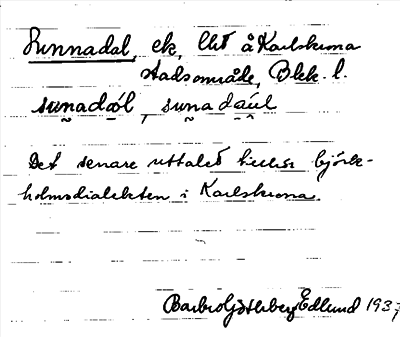 Sunnadal, ek, lht å Karlskrona
stadsområde, Blek. l.
sunadal, sunadaul
Det senare uttalet tillhör björk-
holmsdialekten i Karlskrona.
Barbro Götlberg Edlund 1937